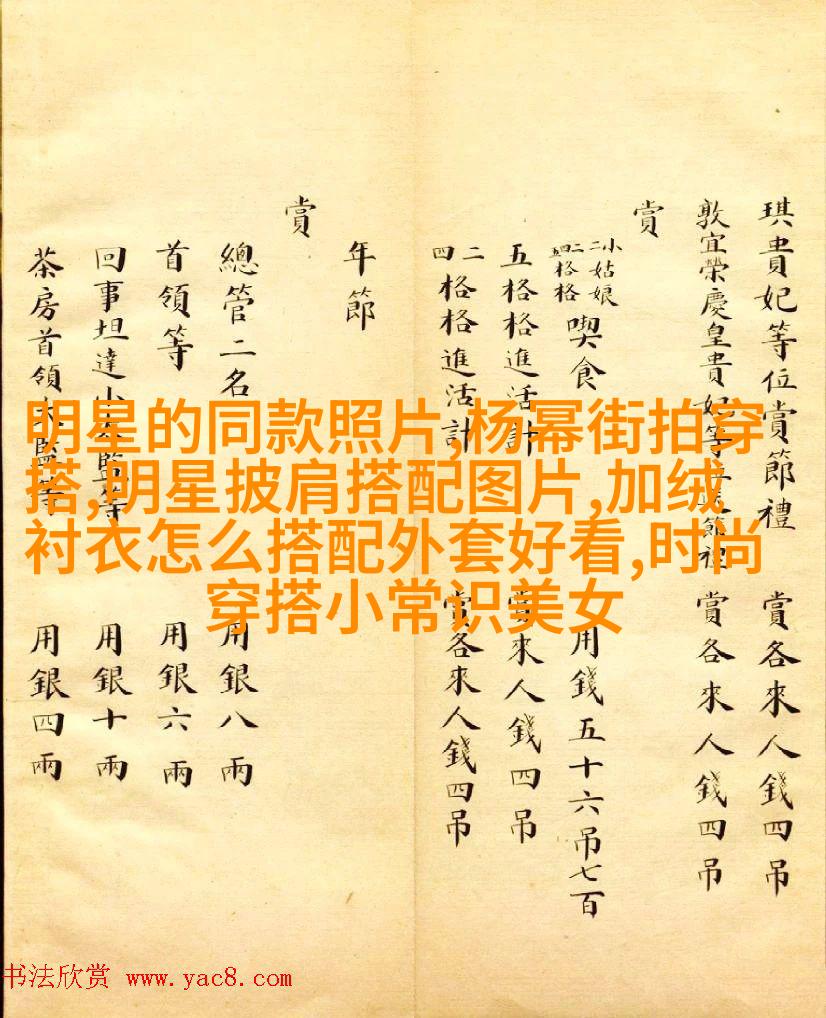 琪貴妃等位賞節禮 賞各來人錢四吊
敦宜榮慶皇貴妃等位賞節禮 賞各來人錢四吊
賞
小姑娘
格格
格格
喫食 用錢五十六吊七百
五格格進活計 賞來人錢四吊
二四格格進活計 賞各來人錢四吊
年節
賞
總管二名 用銀八兩
首領等 用銀六兩
回事坦達小太監等 用銀十兩
茶房首領太監等 用銀四兩
明星的同款照片,杨幂街拍穿
搭,明星披肩搭配图片,加绒
衬衣怎么搭配外套好看,时尚
穿搭小常识美女
书法欣赏 www.yac8.com